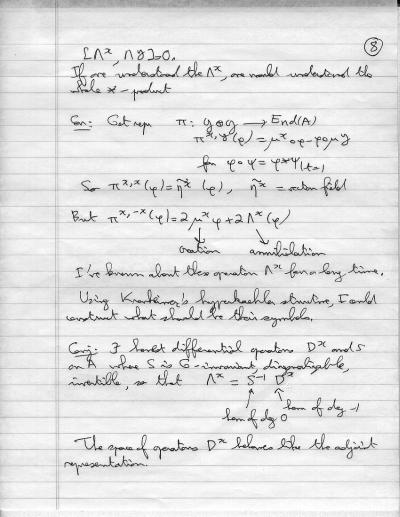 ⑧
[Λ^x, Λ^y]=0.
If one understood the Λ^x, one would understand the
whole * - product
Cor: Get repn π: g⊕g → End(A)
π^{x,y}(φ) = μ^x∘φ - φ∘μ^y
for φ∘ψ = φ*ψ|_{t=1}
So π^{x,x}(φ) = η̃^x (φ), η̃^x = vector field
But π^{x,-x}(φ) = 2μ^xφ + 2Λ^x(φ)
creation annihilation
I've known about these operators Λ^x for a long time.
Using Kronheimer's hyperkaehler structure, I could
construct what should be their symbols.
Conj: ∃ honest differential operators D^x and S
on A where S is G-invariant, diagonalizable,
invertible, so that Λ^x = S^{-1} D^x
hom of deg 0 hom of deg -1
The space of operators D^x behaves like the adjoint
representation.